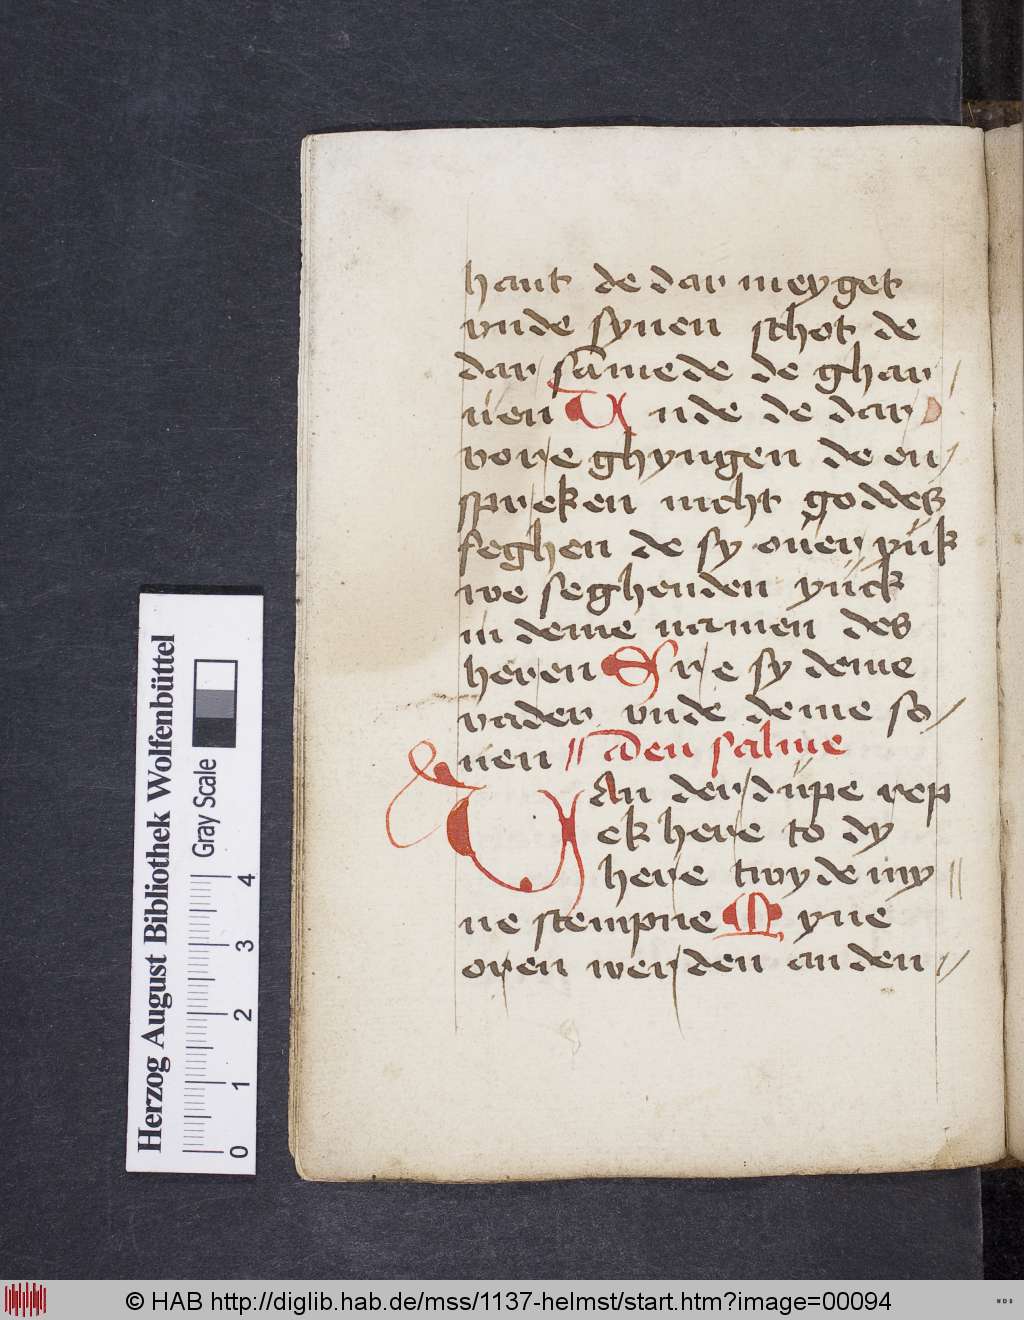 hant de dar meyget
vnde synen schot de
dar samede de ghar
uen Unde de dar
vore ghyngen de en
spreken nicht goddes
seghen de sy ouer yuk
we seghenden yuck
in deme namen des
heren Ere sy deme
vader vnde deme so
nen // den salme
Uan der düpe rep
ek here to dy
here twyde my
ne stempne Myne
oren werden an den
Herzog August Bibliothek Wolfenbüttel
Gray Scale
0 1 2 3 4
© HAB http://diglib.hab.de/mss/1137-helmst/start.htm?image=00094